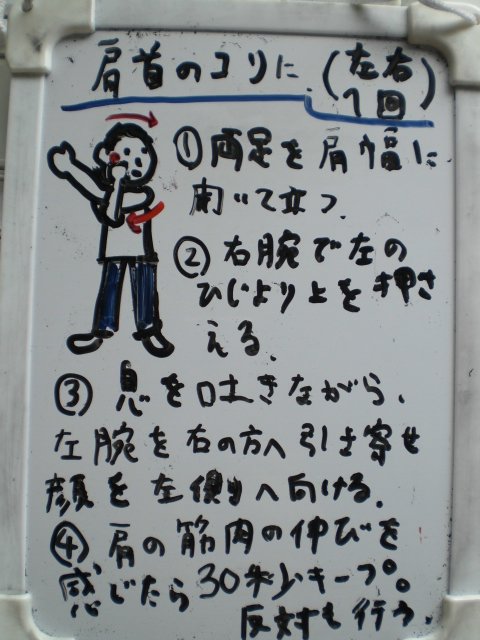 肩首のコリに(左右
1回)
①両足を肩幅に
開いて立つ.
②右腕で左の
ひじより上を押さ
える.
③息を吐きながら、
左腕を右の方へ引き寄せ
顔を左側へ向ける.
④肩の筋肉の伸びを
感じたら30秒キープ。
反対も行う.